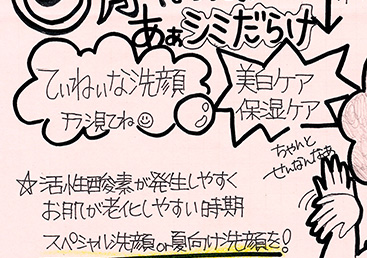 あぁシミだらけ
てぃねぃな洗顔
見てね
美白ケア
保湿ケア
ちゃんと
せんなんなぁ
☆活性酸素が発生しやすく
お肌が老化しやすい時期
スペシャル洗顔or夏向け洗顔を!